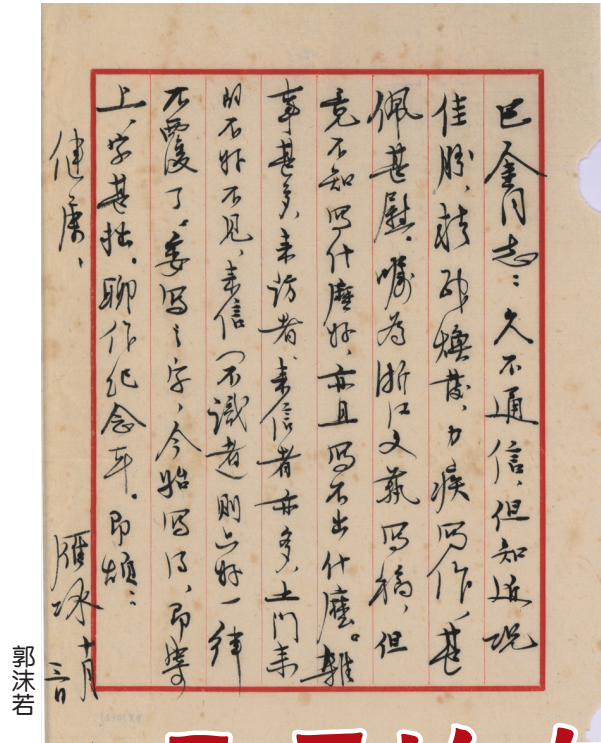 巴金同志：久不通信，但知近况
佳胜，精神焕发，力疾写作，甚
佩甚慰。嘱为浙江文艺写稿，但
竟不知写什麽好，亦且写不出什麽。雜
事甚多，来访者、来信者亦多，上门来
的不好不见，来信（不識者）则只好一律
不覆了。委写之字，今始写得，即寄
上，字甚拙，聊作纪念耳。即颂：
健康，
雁冰 十月
三日
郭沫若